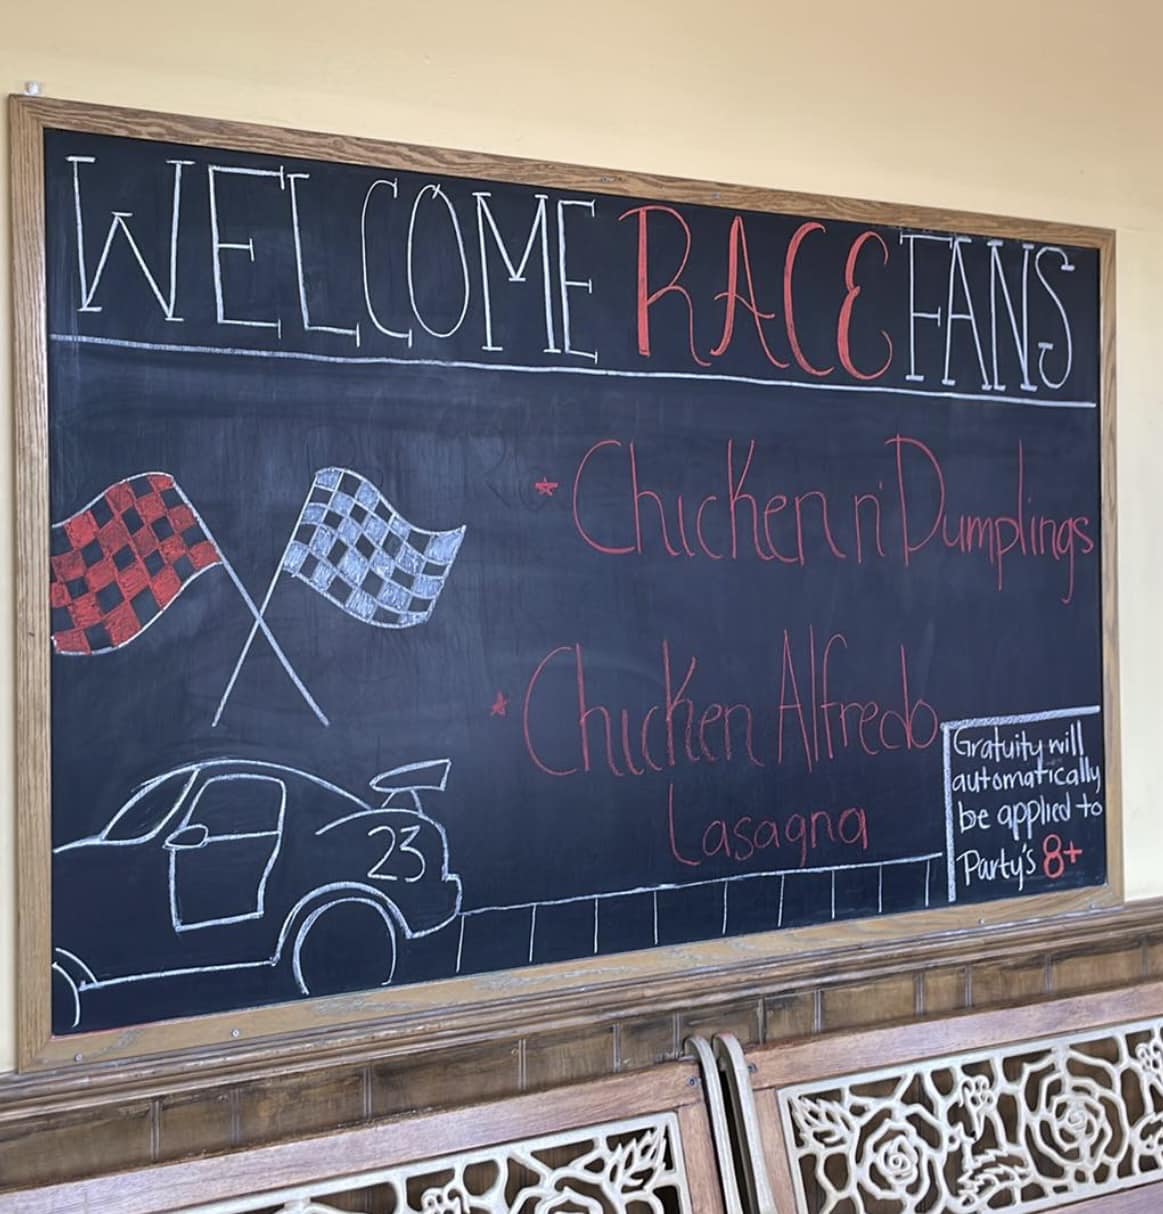 WELCOME RACE FANS
* Chicken n' Dumplings
* Chicken Alfredo
Lasagna
Gratuity will
automatically
be applied to
Party's 8+
23